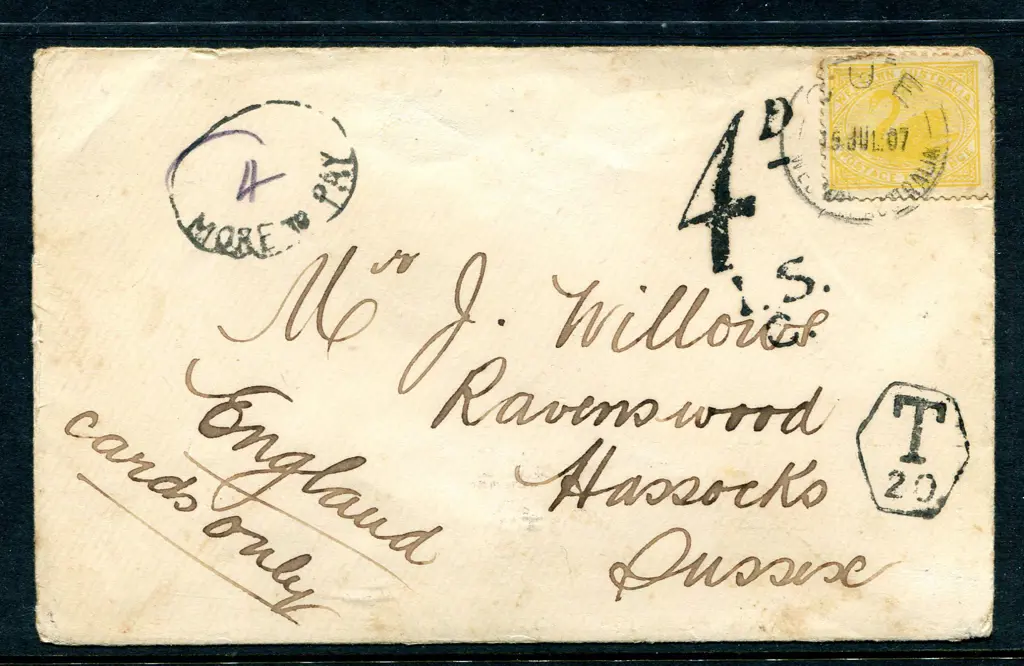 4
MORE TO PAY
4D
I.S.
C.
WESTERN AUSTRALIA
2
POSTAGE
CUE
15 JUL. 07
WESTERN AUSTRALIA
Mr J. Willows
Ravenswood
Hassocks
Sussex
England
cards only
T
20